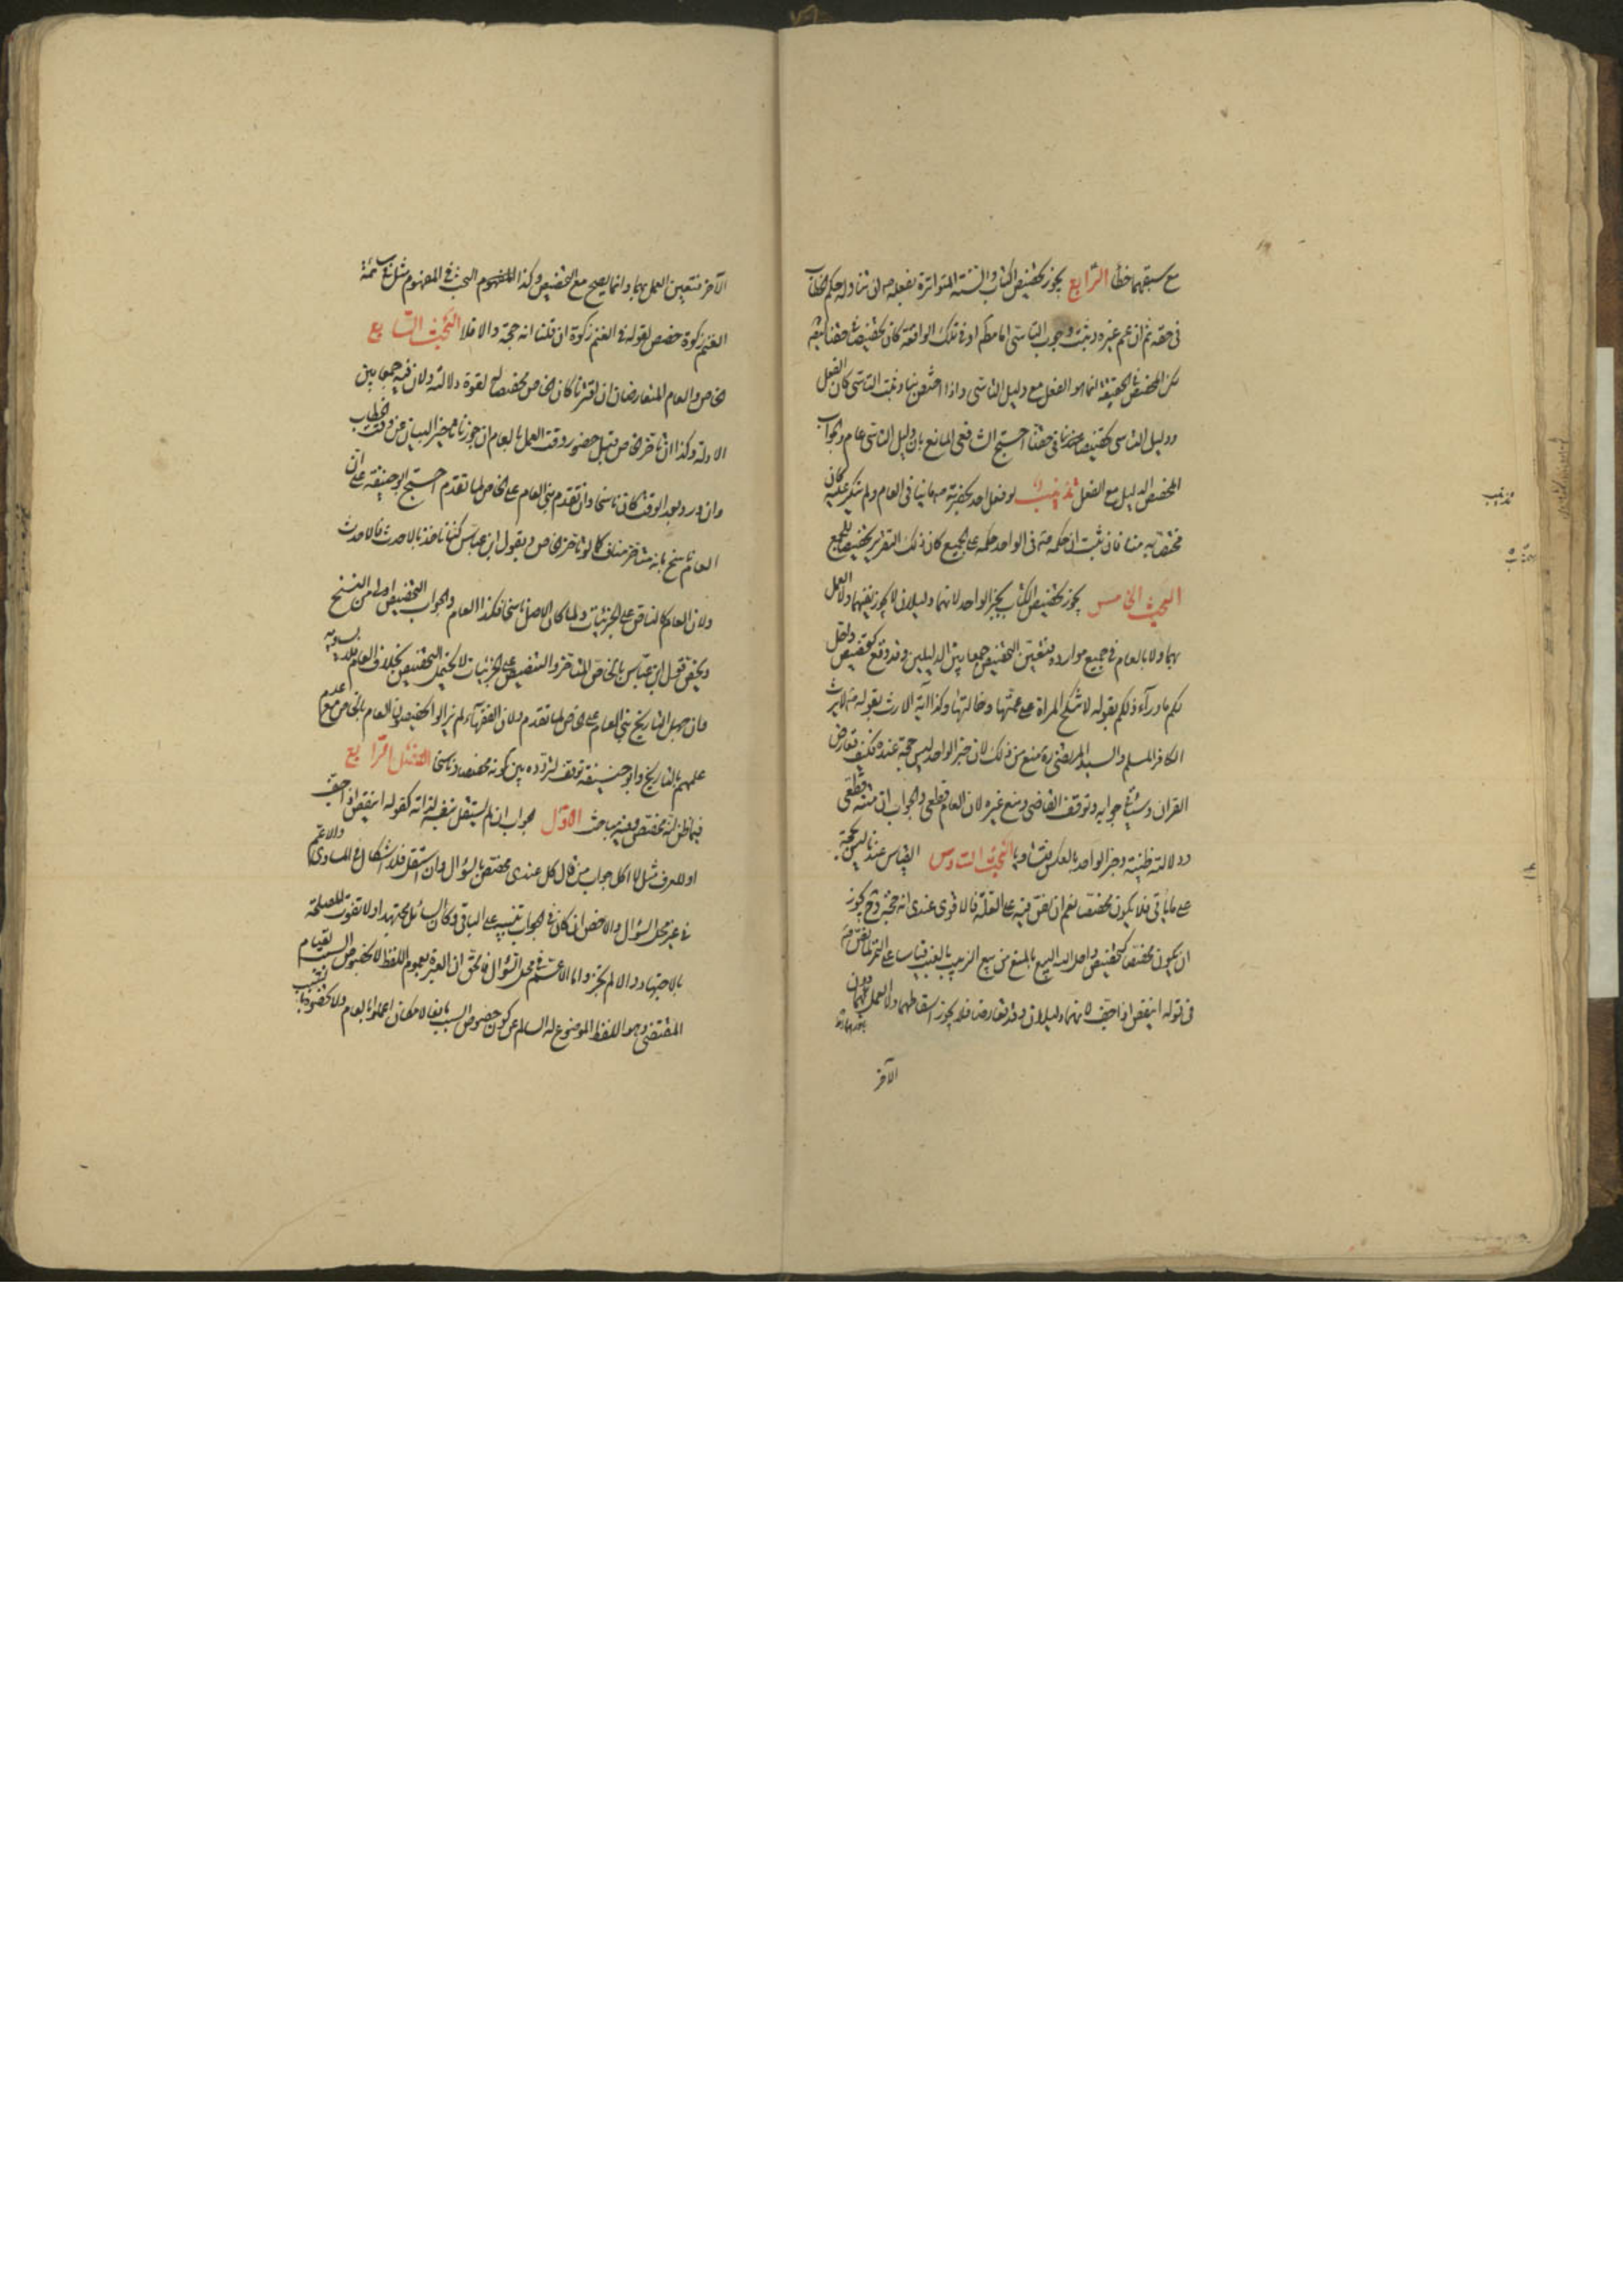 مع سبقهما خطأ الرابع يجوز تخصيص الكتاب والسنة المتواترة بفعله ص ان تناوله حكم الخطاب
فى حقه ثم ان عم غيره وثبت وجوب التاسى اما مطم او فى تلك الواقعة كان تخصيصا فى حقنا ايضا
لكن المخصص فى الحقيقة انما هو الفعل مع دليل التاسى واذا اختص بنا وثبت التاسى كان الفعل
ودليل التاسى تخصيصا فى حقنا احتج الشافعى المانع بان دليل التاسى عام والجواب
المخصص الدليل مع الفعل تذنيب لو فعل احد بحضرته ص ما ينافى العام ولم ينكر عليه كان
مختصا به منا فان ثبت ان حكمه ص فى الواحد حكمه على الجميع كان ذلك التقرير تخصيصا للجميع
البحث الخامس يجوز تخصيص الكتاب بخبر الواحد لانهما دليلان لا يجوز نفيهما ولا العمل
بهما ولا بالعام فى جميع موارده فتعين التخصيص جمعا بين الدليلين وقد وقع كتخصيص واحل
لكم ما وراء ذلكم بقوله لا تنكح المراة على عمتها وخالتها وكذا آية الارث بقوله ص لا يرث
الكافر المسلم والسيد المرتضى ره منع من ذلك لان خبر الواحد ليس حجة عنده فكيف تعارض
القران وسياتى جوابه وتوقف القاضى ومنع غيره لان العام قطعى والجواب ان متنه قطعى
ودلالته ظنية وخبر الواحد بالعكس فتساويا البحث السادس القياس عندنا ليس بحجة
على ما ياتى فلا يكون مخصصا نعم ان نص فيه على العلة فالاقوى عندى انه حجة وح يجوز
ان يكون مخصصا كتخصيص واحل الله البيع بالمنع من بيع الزبيب بالعنب قياسا على التمر لما نص
فى قوله اينقص اذا جف لانهما دليلان وقد تعارضا فلا يجوز اسقاطهما ولا العمل بهما دون
الآخر
تذنيب
الآخر فتعين العمل بهما وانما يصح مع التخصيص وكذا البحث فى المفهوم مثل فى سائمة
الغنم زكوة خصص لقوله فى الغنم زكوة ان قلنا انه حجة والا فلا البحث السابع
الخاص والعام المتعارضان ان اقترنا كان الخاص مخصصا لقوة دلالته ولان فيه جمعا بين
الادلة وكذا ان تاخر الخاص قبل حضور وقت العمل بالعام ان جوزنا تاخير البيان عن وقت الخطاب
وان ورد بعد الوقت كان ناسخا وان تقدم بنى العام على الخاص لما تقدم احتج ابو حنيفة على ان
العام ناسخ بانه متاخر مناف كما لو تاخر الخاص وبقول ابن عباس كنا ناخذ بالاحدث فالاحدث
ولان العام كالتناص على الجزئيات ولما كان الاصل ناسخا فكذا العام والجواب التخصيص اولى من النسخ
ويخص قول ابن عباس بالخاص المتاخر والتنصيص على الجزئيات لا يحتمل التخصيص بخلاف العام
فان جهل التاريخ بنى العام على الخاص لما تقدم ولان الفقهاء لم يزالوا يخصصون العام بالخاص مع عدم
علمهم بالتاريخ وابو حنيفة توقف لتردده بين كونه مخصصا وناسخا الفصل الرابع
فيما ظن انه مخصص وفيه مباحث الاول الجواب ان لم يستقل بنفسه لذاته كقوله اينقص اذا جف
او للعرف مثل لا اكل جواب من قال كل عندى مختص بالسؤال وان استقل فلا اشكال فى المساوى والاعم
فى غير محل السؤال والاخص ان كان فى الجواب تنبيه على الباقى وكان السائل مجتهدا ولا تفوت المصلحة
بالاجتهاد والا لم يجز واما الاعم فى محل السؤال فالحق ان العبرة بعموم اللفظ لا بخصوص السبب لقيام
المقتضى وهو اللفظ الموضوع له السالم عن كون خصوص السبب مانعا لامكان اعملوا بالعام ولا تخصوه